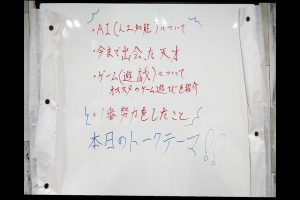 ・AI(人工知能)について
・今まで出会った天才
・ゲーム(遊戯)について
のゲーム遊びを紹介
1番努力をしたこと
本日のトークテーマ!!